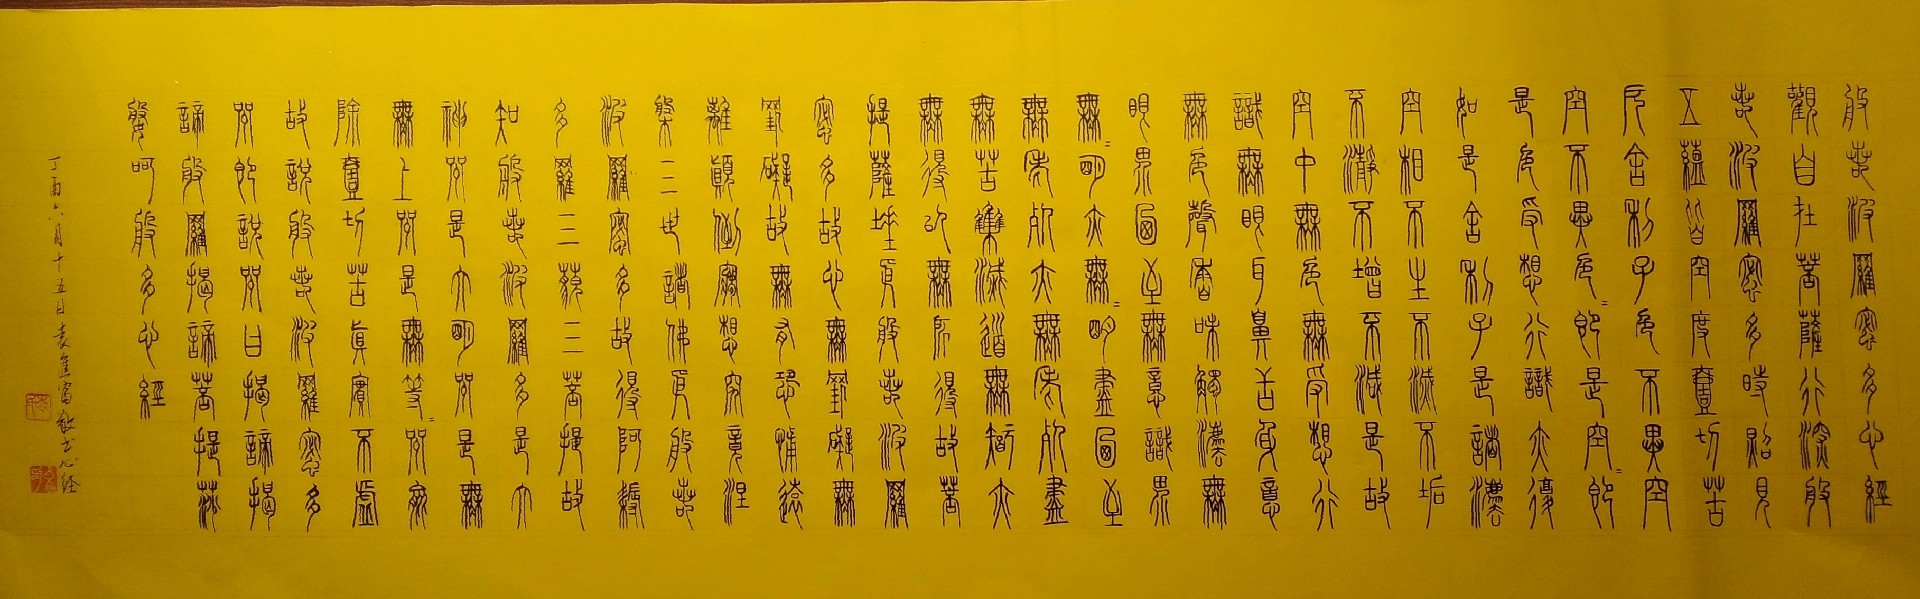 般若波羅蜜多心經
觀自在菩薩行深般
若波羅蜜多時照見
五蘊皆空度壹切苦
厄舍利子色不異空
空不異色〻即是空〻即
是色受想行識亦復
如是舍利子是諸灋
空相不生不滅不垢
不瀞不增不減是故
空中無色無受想行
識無眼耳鼻舌身意
無色聲香味觸灋無
眼界迺至無意識界
無〻明亦無〻明盡迺至
無老死亦無老死盡
無苦集滅道無智亦
無得以無所得故菩
提薩埵依般若波羅
蜜多故心無罣礙無
罣礙故無有恐怖遠
離顛倒夢想究竟涅
槃三世諸佛依般若
波羅蜜多故得阿耨
多羅三藐三菩提故
知般若波羅多是大
神咒是大明咒是無
無上咒是無等〻咒能
除壹切苦真實不虛
故說般若波羅蜜多
咒即說咒曰揭諦揭
諦般羅揭諦菩提莎
婆呵般多心經
丁酉六月十五日袁進富敬书心经